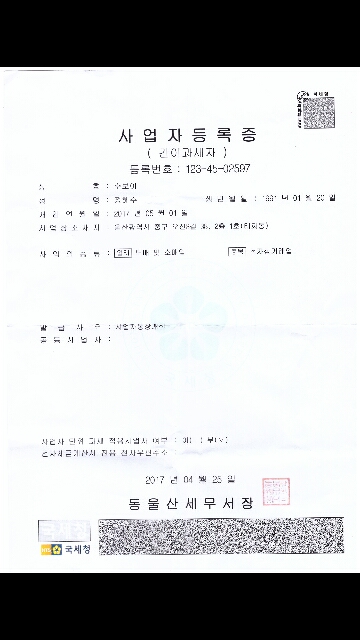 국세청
사업자등록증
( 간이과세자 )
등록번호 : 123-45-02597
상 호 :
성 명 : 생 년 월 일 : 1991 년 01 월 20 일
개 업 연 월 일 : 2017 년 05 월 01 일
사업장 소재지 : 울산광역시 중구
사 업 의 종 류 : 업태 도매 및 소매업 종목 전자상거래업
발 급 사 유 :
공 동 사 업 자 :
사업자 단위 과세 적용사업자 여부 : 여( ) 부(∨)
전자세금계산서 전용 전자우편주소 :
2017 년 04 월 25 일
동울산세무서장
국세청
NTS 국세청